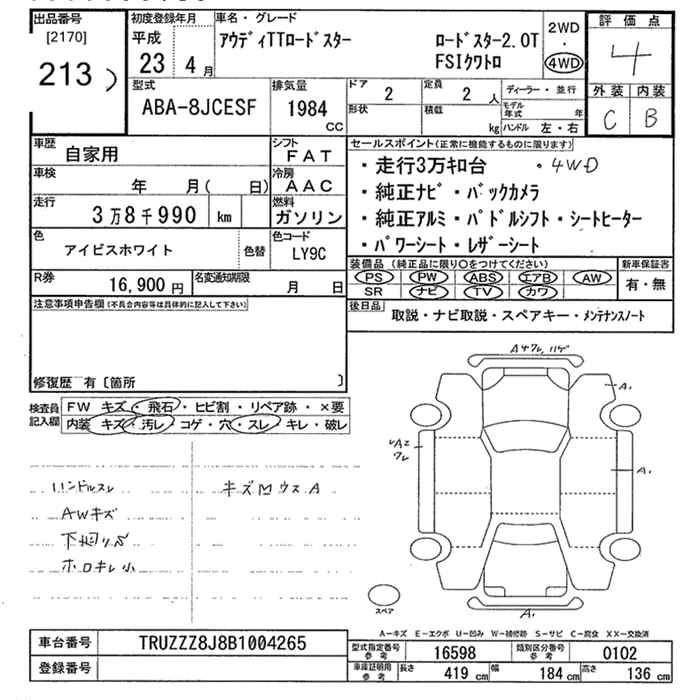 出品番号
[2170]
213
初度登録年月
平成
23 4月
車名・グレード
アウディTTロードスター ロードスター2.0T
FSIクワトロ
2WD
・
4WD
評価点
4
外装 内装
C B
型式
ABA-8JCESF
排気量
1984
CC
ドア
2
定員
2 人
形状
積載
kg
ディーラー・並行
モデル年式 年
ハンドル 左・右
車歴
自家用
シフト
FAT
車検
年 月( 日)
冷房
AAC
走行
3万8千990 km
燃料
ガソリン
色
アイビスホワイト
色替
色コード
LY9C
R券
16,900円
名変通知期限
月 日
セールスポイント(正常に機能するものに限ります)
・走行3万キロ台 ・4WD
・純正ナビ・バックカメラ
・純正アルミ・パドルシフト・シートヒーター
・パワーシート・レザーシート
装備品(純正品に限り○をつけてください)
PS PW ABS エアB AW
SR ナビ TV カワ
新車保証書
有・無
後日品
取説・ナビ取説・スペアキー・メンテナンスノート
注意事項申告欄(不具合内容等は具体的に記入して下さい)
修復歴 有〔箇所 〕
検査員
記入欄
FW キズ・飛石・ヒビ割・リペア跡・×要
内装 キズ・汚レ・コゲ・穴・スレ・キレ・破レ
ハンドルスレ
AWキズ
ホロキレ小
A
A
A
A
スペア
A-キズ E-エクボ U-凹み W-補修跡 S-サビ C-腐食 XX-交換済
車台番号
TRUZZZ8J8B1004265
登録番号
型式指定番号
参考
16598
類別区分番号
参考
0102
車庫証明用
参考
長さ 419 cm 幅 184 cm 高さ 136 cm